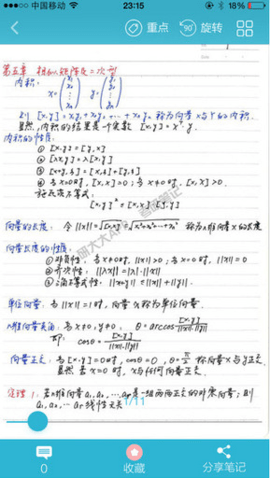 中国移动 23:15 18%
重点 旋转
第五章 相似矩阵及二次型
内积: x = (x₁ x₂ ⋮ xₙ) y = (y₁ y₂ ⋮ yₙ)
则 [x,y] = x₁y₁ + x₂y₂ + … + xₙyₙ 称为向量x与y的内积.
显然,内积的结果是一个实数 [x,y] = xᵀy.
内积的性质:
① [x,y] = [y,x]
② [λx,y] = λ[x,y]
④ 当x=0时, [x,x]=0; 当x≠0时, [x,x]>0.
施瓦茨不等式:
[x,y]² ≤ [x,x]·[y,y]
向量的长度: 令 ||x|| = √[x,x] = √x₁²+x₂²+…+xₙ² 称为n维向量x的长度
向量长度的性质:
① 非负性: 当x≠0时, ||x||>0; 当x=0时, ||x||=0
② 齐次性: ||λx|| = |λ|·||x||
③ 三角不等式性: ||x+y|| ≤ ||x||+||y||
单位向量: 当||x||=1时, 向量x称为单位向量.
n维向量夹角: 当x≠0, y≠0, θ = arccos [x,y]/||x||·||y||
即: cosθ = [x,y]/||x||·||y||
向量正交: 当[x,y]=0时, cosθ=0, θ=π/2 称向量x与y正交.
显然 若x=0时, x与任何向量正交.
定理1: 若n维向量a₁,a₂,…,aᵣ是一组两两正交的非零向量, 则
a₁,a₂,…aᵣ线性无关
1/11
0 收藏 分享笔记